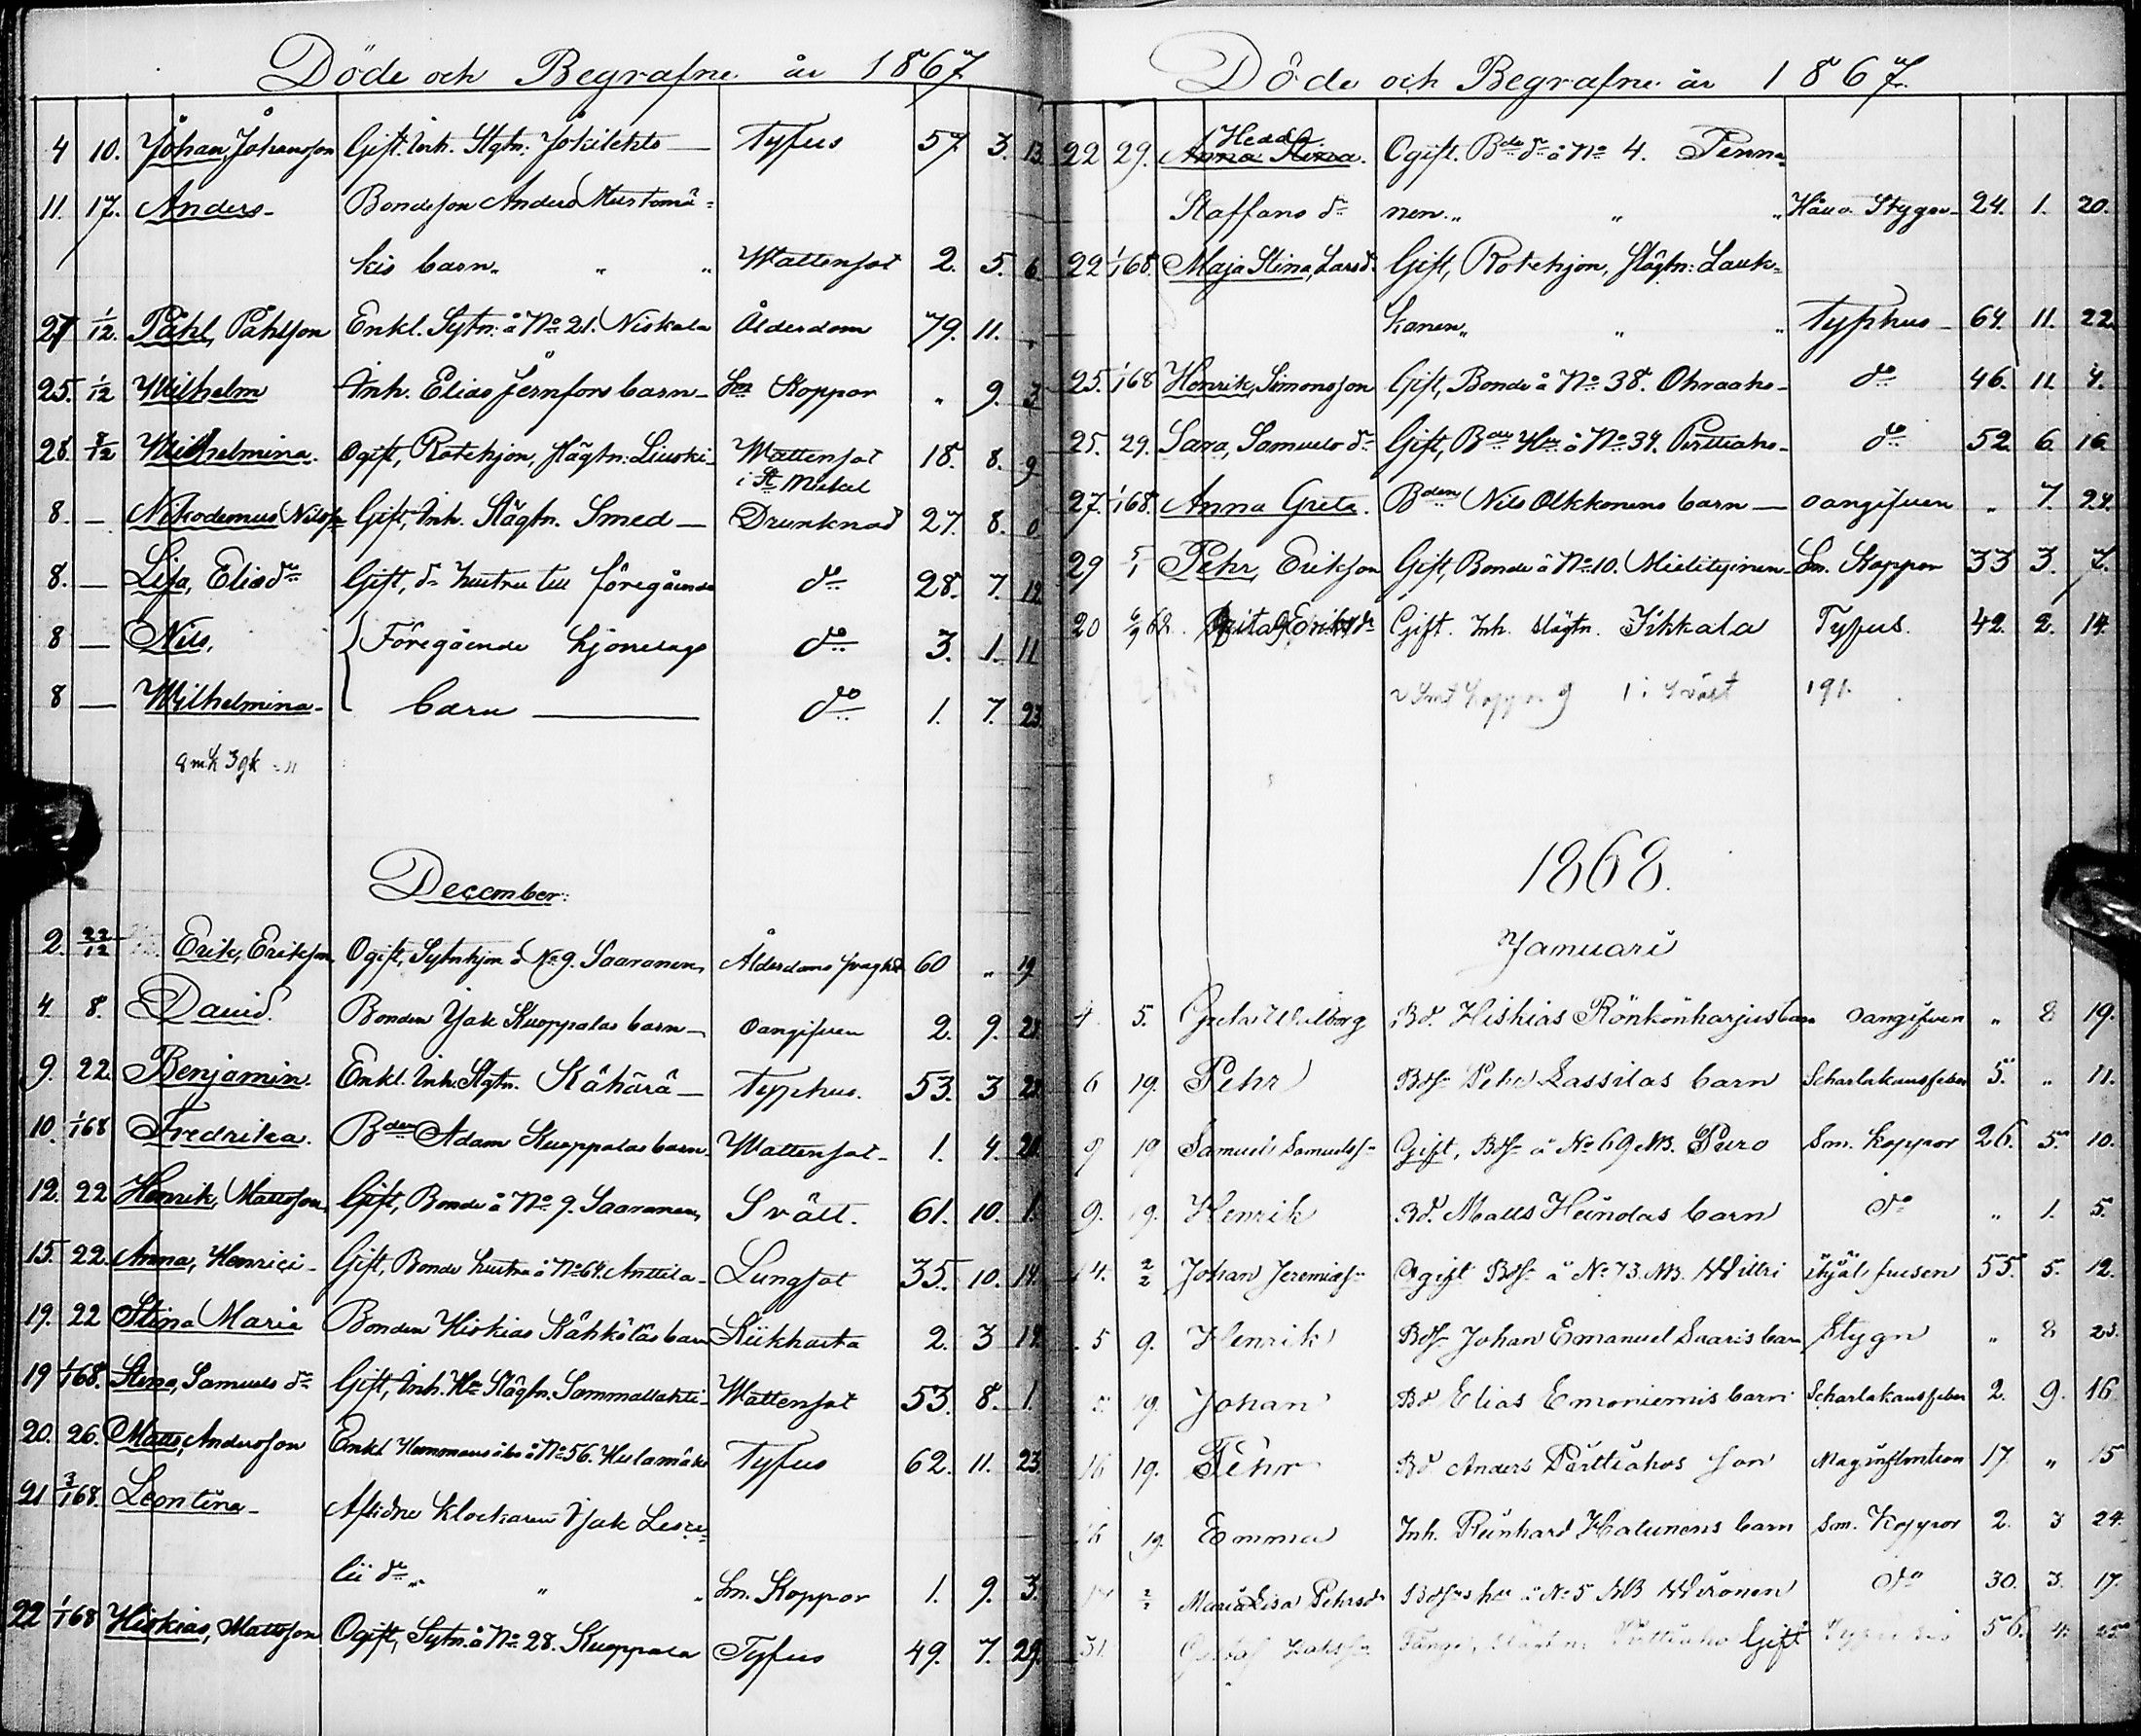 Döde och Begrafne år 1867
4 10. Johan, Johansson Gift. Inh. Slgtn: Jokilehto — Tyfus 57. 3. 13.
11. 17. Anders - Bondeson Anders Mustomä=
kis barn „ „ „ Wattensot 2. 5. 6
27 1/12. Påhl, Påhlsson Enkl. Sytn: å No 21. Niskala Ålderdom 79. 11. „
25. 1/12 Wilhelm Inh. Elias Jernfors barn - Sm Koppor „ 9. 3
28. 8/12 Wilhelmina. Ogift, Rotehjon, slägtn: Liuski - Wattensot 18. 8. 9
i St Mickel
8. — Nikodemus Nilss. Gift, Inh. Slägtn. Smed — Drunknad 27. 8. 0
8. — Lisa, Elisdr Gift, dr hustru till föregående do 28. 7. 12
8 — Nils, Föregående hjonelags do 3. 1. 11
8 — Wilhelmina - barn — do 1. 7. 23.
9 mk 3 gk = 11
December:
2. 22/12 Erik, Eriksson, Ogift, Sytnhjon å No 9. Saaranen, Ålderdoms svaght 60 „ 19
4. 8. David. Bonden Isak Kuoppalas barn — oangifven 2. 9. 28.
9. 22. Benjamin. Enkl. Inh. Slgtn. Kähärä — Typhus. 53. 3 22.
10. 1/168 Fredrika. Bden Adam Kuoppalas barn. Wattensot - 1. 4. 21.
12. 22 Henrik, Mattsson, Gift, Bonde å No 9. Saaranen, Svält. 61. 10. 1.
15. 22. Anna, Henrici - Gift, Bonde hustru å No 64. Anttila - Lungsot 35. 10. 14.
19. 22 Stina Maria Bonden Hiskias Kähkölas barn Kikhosta 2. 3 12.
19 1/168. Stina, Samuels dr Gift, Inh. Hu Slägtn. Sammallahti - Wattensot 53. 8. 1.
20. 26. Matts, Andersson Enkl. Hemmans åbo å No 56. Hulamäki Tyfus 62. 11. 23
21 3/168. Leontina - Aflidne Klockaren Isak Lese=
lii dr „ „ „ Sm. Koppor 1. 9. 3.
22 1/168 Hiskias, Mattsson Ogift, Sytn. å No 28. Kuoppala Tyfus 49. 7. 29.
Döde och Begrafne år 1867.
Hedda
22 29. Anna Stina. Ogift. Bde dr å No 4. Penna=
Staffans dr nen „ „ „ Håll o. Stygn - 24. 1. 20.
22 1/168. Maja Stina, Larsd. Gift, Rotehjon, Slägtn: Lauk=
kanen „ „ „ Typhus - 64. 11. 22.
25. 1/168 Henrik, Simonsson Gift, Bonde å No 38. Ohraaho - do 46. 11. 4.
25. 29. Sara, Samuels dr Gift, Bde Hu å No 34. Perttiaho - do 52. 6. 16.
27. 1/168. Anna Greta. Bden Nils Olkkonens barn — oangifven „ 7. 24.
29 5/1 Pehr, Eriksson Gift, Bonde å No 10. Mielityinen - Sm. Koppor 33 3. 7.
20 6/9 68. Brita Eriksdr Gift. Inh. slägtn. Jikkala Typus. 42. 2. 14.
1 i svält 191.
1868.
Januari
4. 5. Greta Walborg Bd. Hiskias Rönkönharjus barn oangifven „ 8 19.
6 19. Pehr Bdsn Pehr Lassilas barn Scharlakansfeber 5. „ 11.
9 19 Samuel Samuelssn Gift, Bdsn å No 69 MB. Puro Sm. koppor 26. 5. 10.
9. 19. Henrik Bd. Matts Heinolas barn do „ 1. 5.
14. 2/2 Johan Jeremiass Ogift Bdsn å No 73. MB. Wittri ihjäl frusen 55. 5. 12.
5 9. Henrik Bdsn Johan Emanuel Saaris barn Stygn „ 8 23.
19. Johan Bd Elias Emoniemis barn Scharlakansfeber 2. 9. 16.
16 19. Pehr Bd Anders Perttiahos son Maginflmtion 17 „ 15
16 19. Emma Inh. Reinhard Halunens barn Sm. Koppor 2. 3 24.
17 2/2 Maria Lisa Pehrsdr Bdsns hu å No 5 MB Wironen do 30. 3. 17.
31. Gustaf Gift 56. 4. 25.